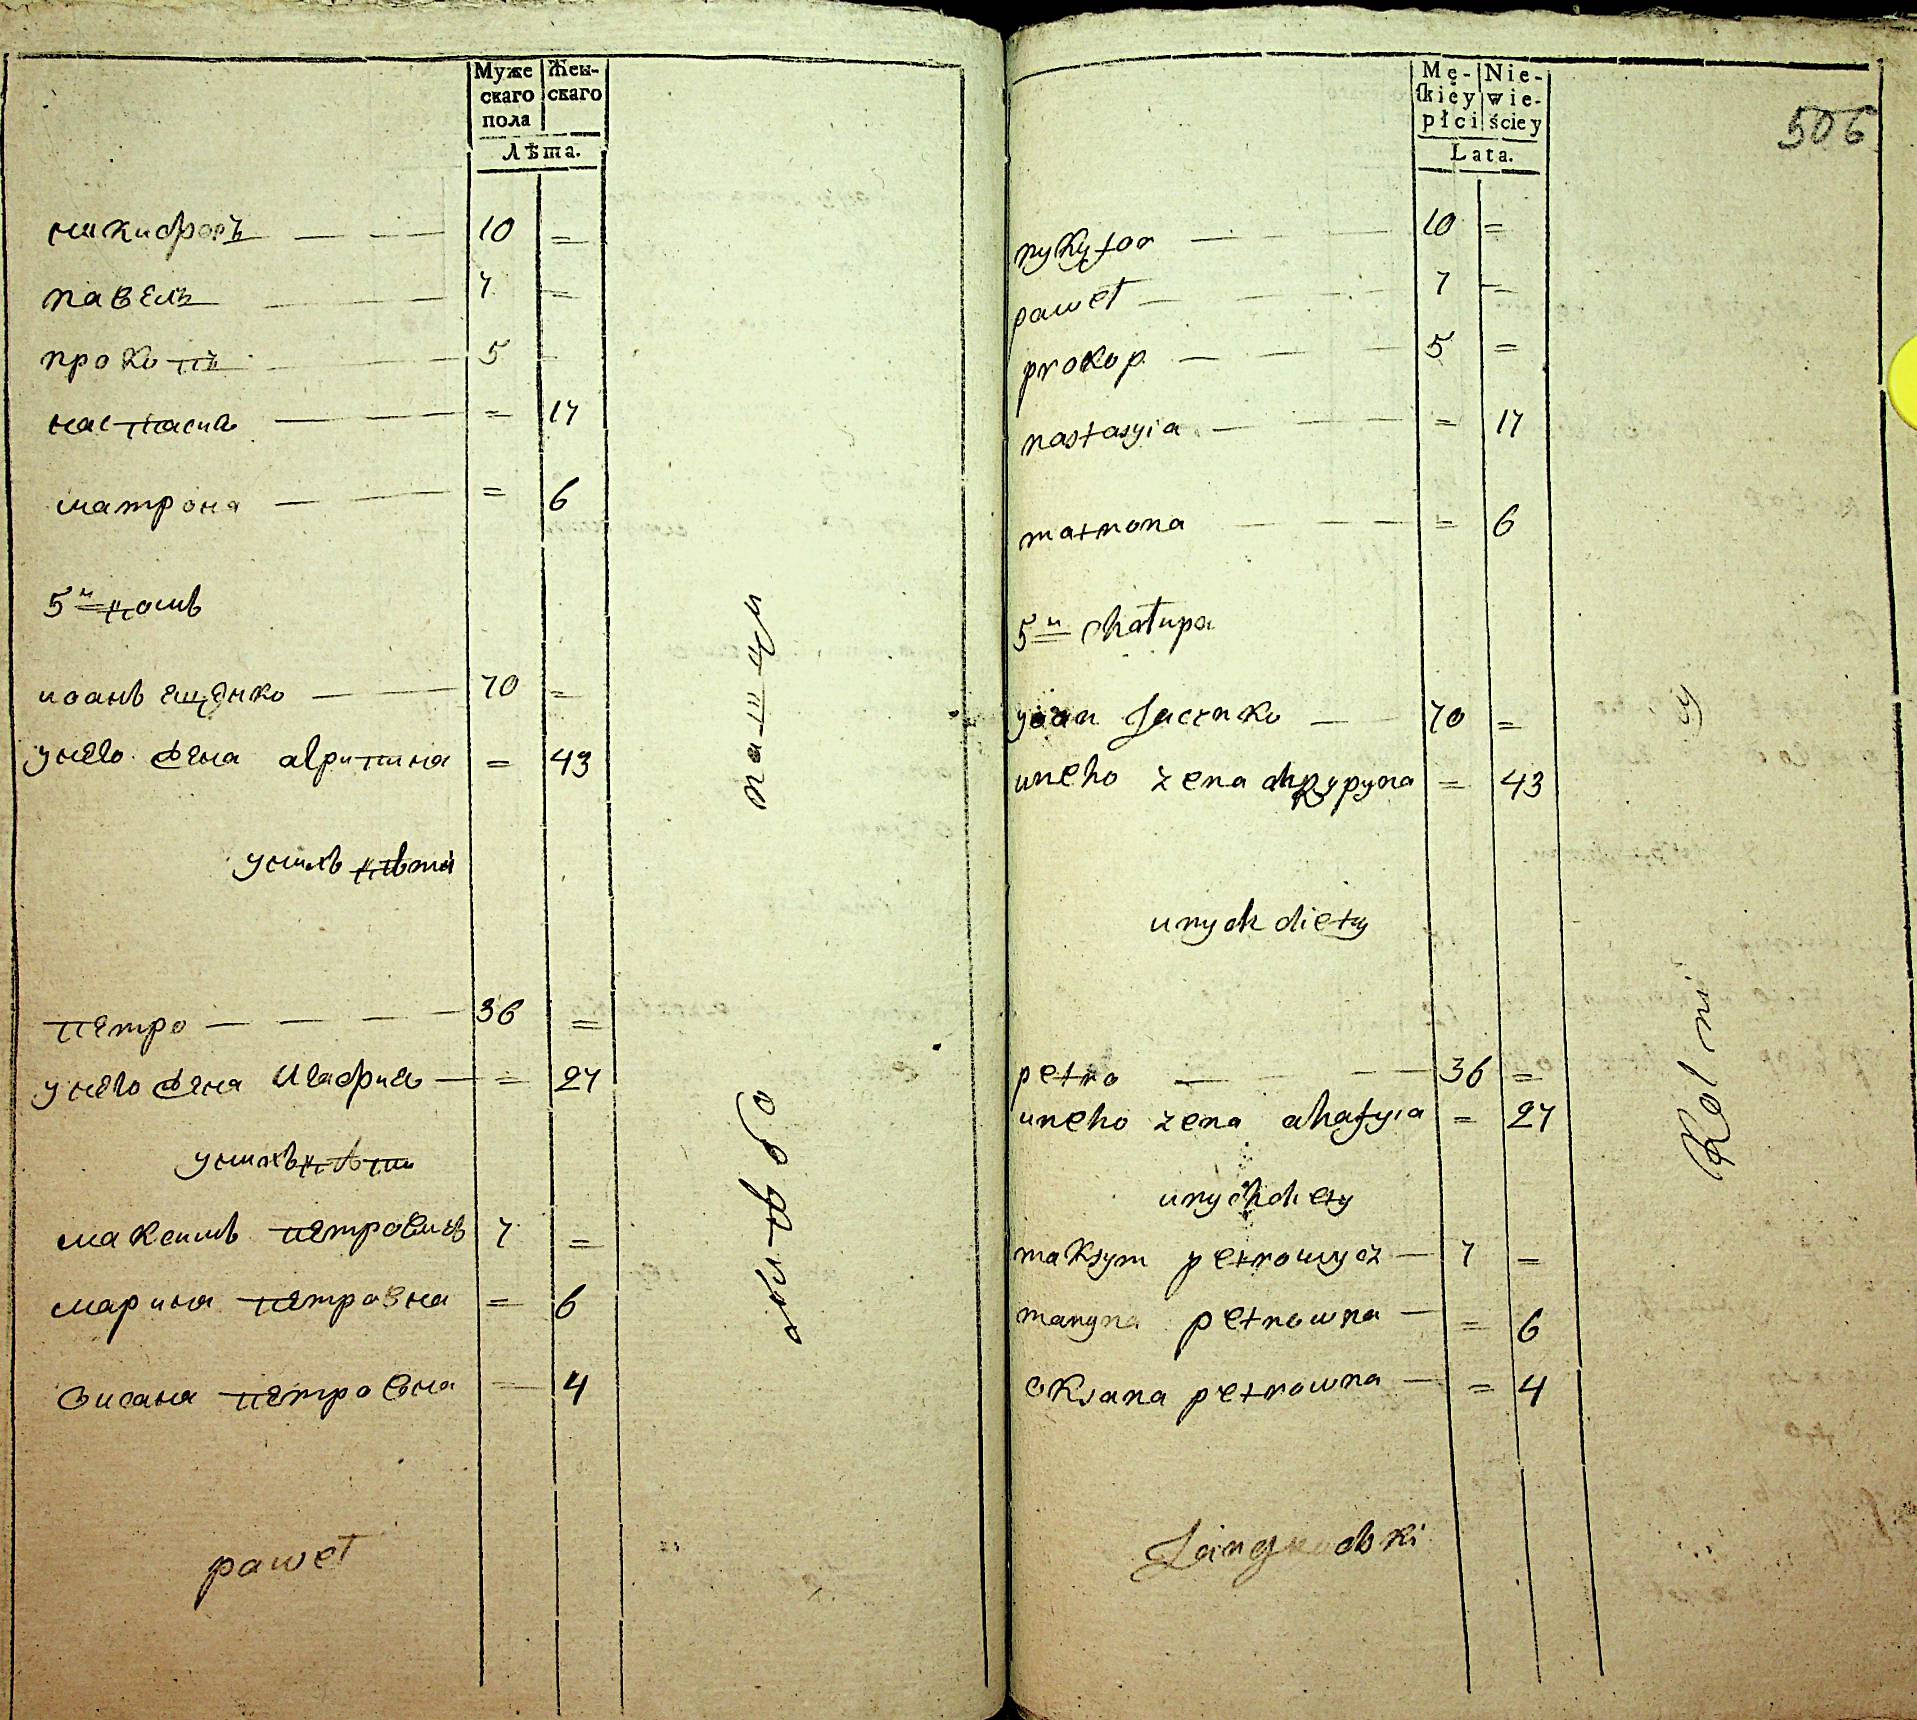 Муже Жен-
скаго скаго
пола
Лѣта.
никифоръ 10 =
павелъ 7 =
прокопъ 5 =
настасия = 17
матрона = 6
5й домъ
иоанъ ещенко 70 =
унего жена агрипина = 43
унихъ дѣти
петро 36 =
унего жена агафия = 27
унихъ дѣти
максимъ петровичъ 7 =
марина петровна = 6
оксана петровна = 4
paweł
Mę- Nie-
ſkiey wie-
płci ściey
Lata.
506
nykyfor 10 =
paweł 7 =
prokop 5 =
nastasyia = 17
matrona = 6
5й chałupa
yoan Jacenko 70 =
uneho zena ahrypyna = 43
unych diety
petro 36 =
uneho zena ahafyia = 27
unych diety
maksym petrowycz 7 =
maryna petrowna = 6
oksana petrowna = 4
Rolni
cy